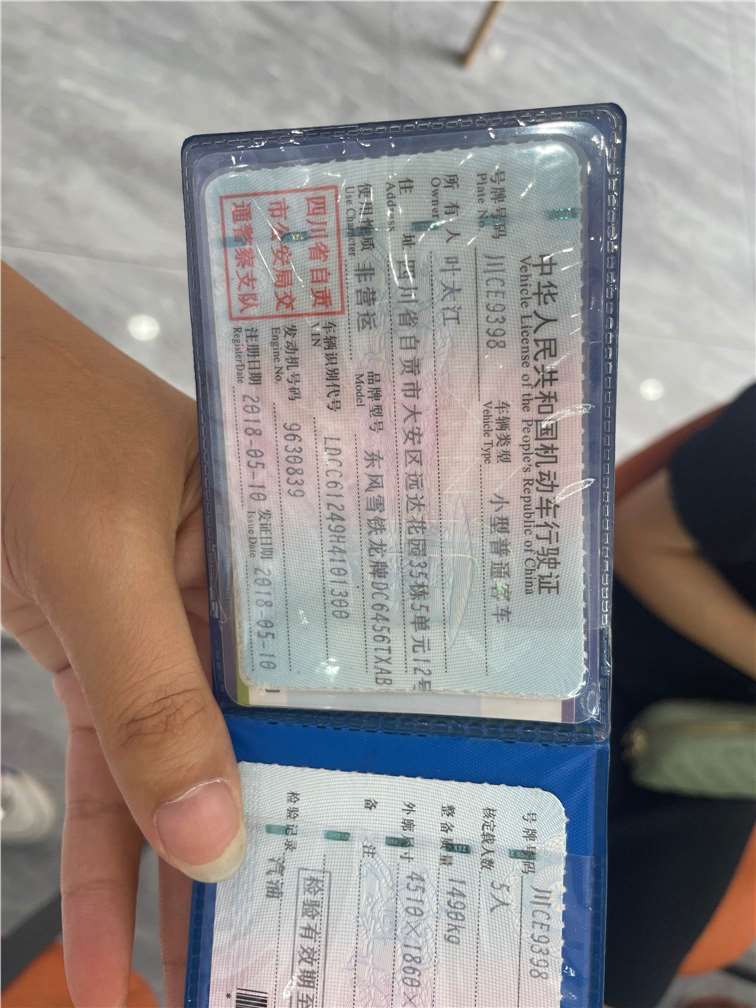 中华人民共和国机动车行驶证
Vehicle License of the People's Republic of China
号牌号码 川CE9398 车辆类型 小型普通客车
Plate No. Vehicle Type
所有人 叶太江
Owner
住址 四川省自贡市大安区远达花园35栋5单元12号
Address
使用性质 非营运 品牌型号 东风雪铁龙牌DC6456TXAB
Use Character Model
四川省自贡
市公安局交
通警察支队
车辆识别代号 LDCC61249H4101300
VIN
发动机号码 9630839
Engine No.
注册日期 2018-05-10 发证日期 2018-05-10
Register Date Issue Date
号牌号码 川CE9398
核定载人数 5人
整备质量 1490kg
外廓尺寸 4510×1860×
备注
检验有效期至
检验记录 汽油